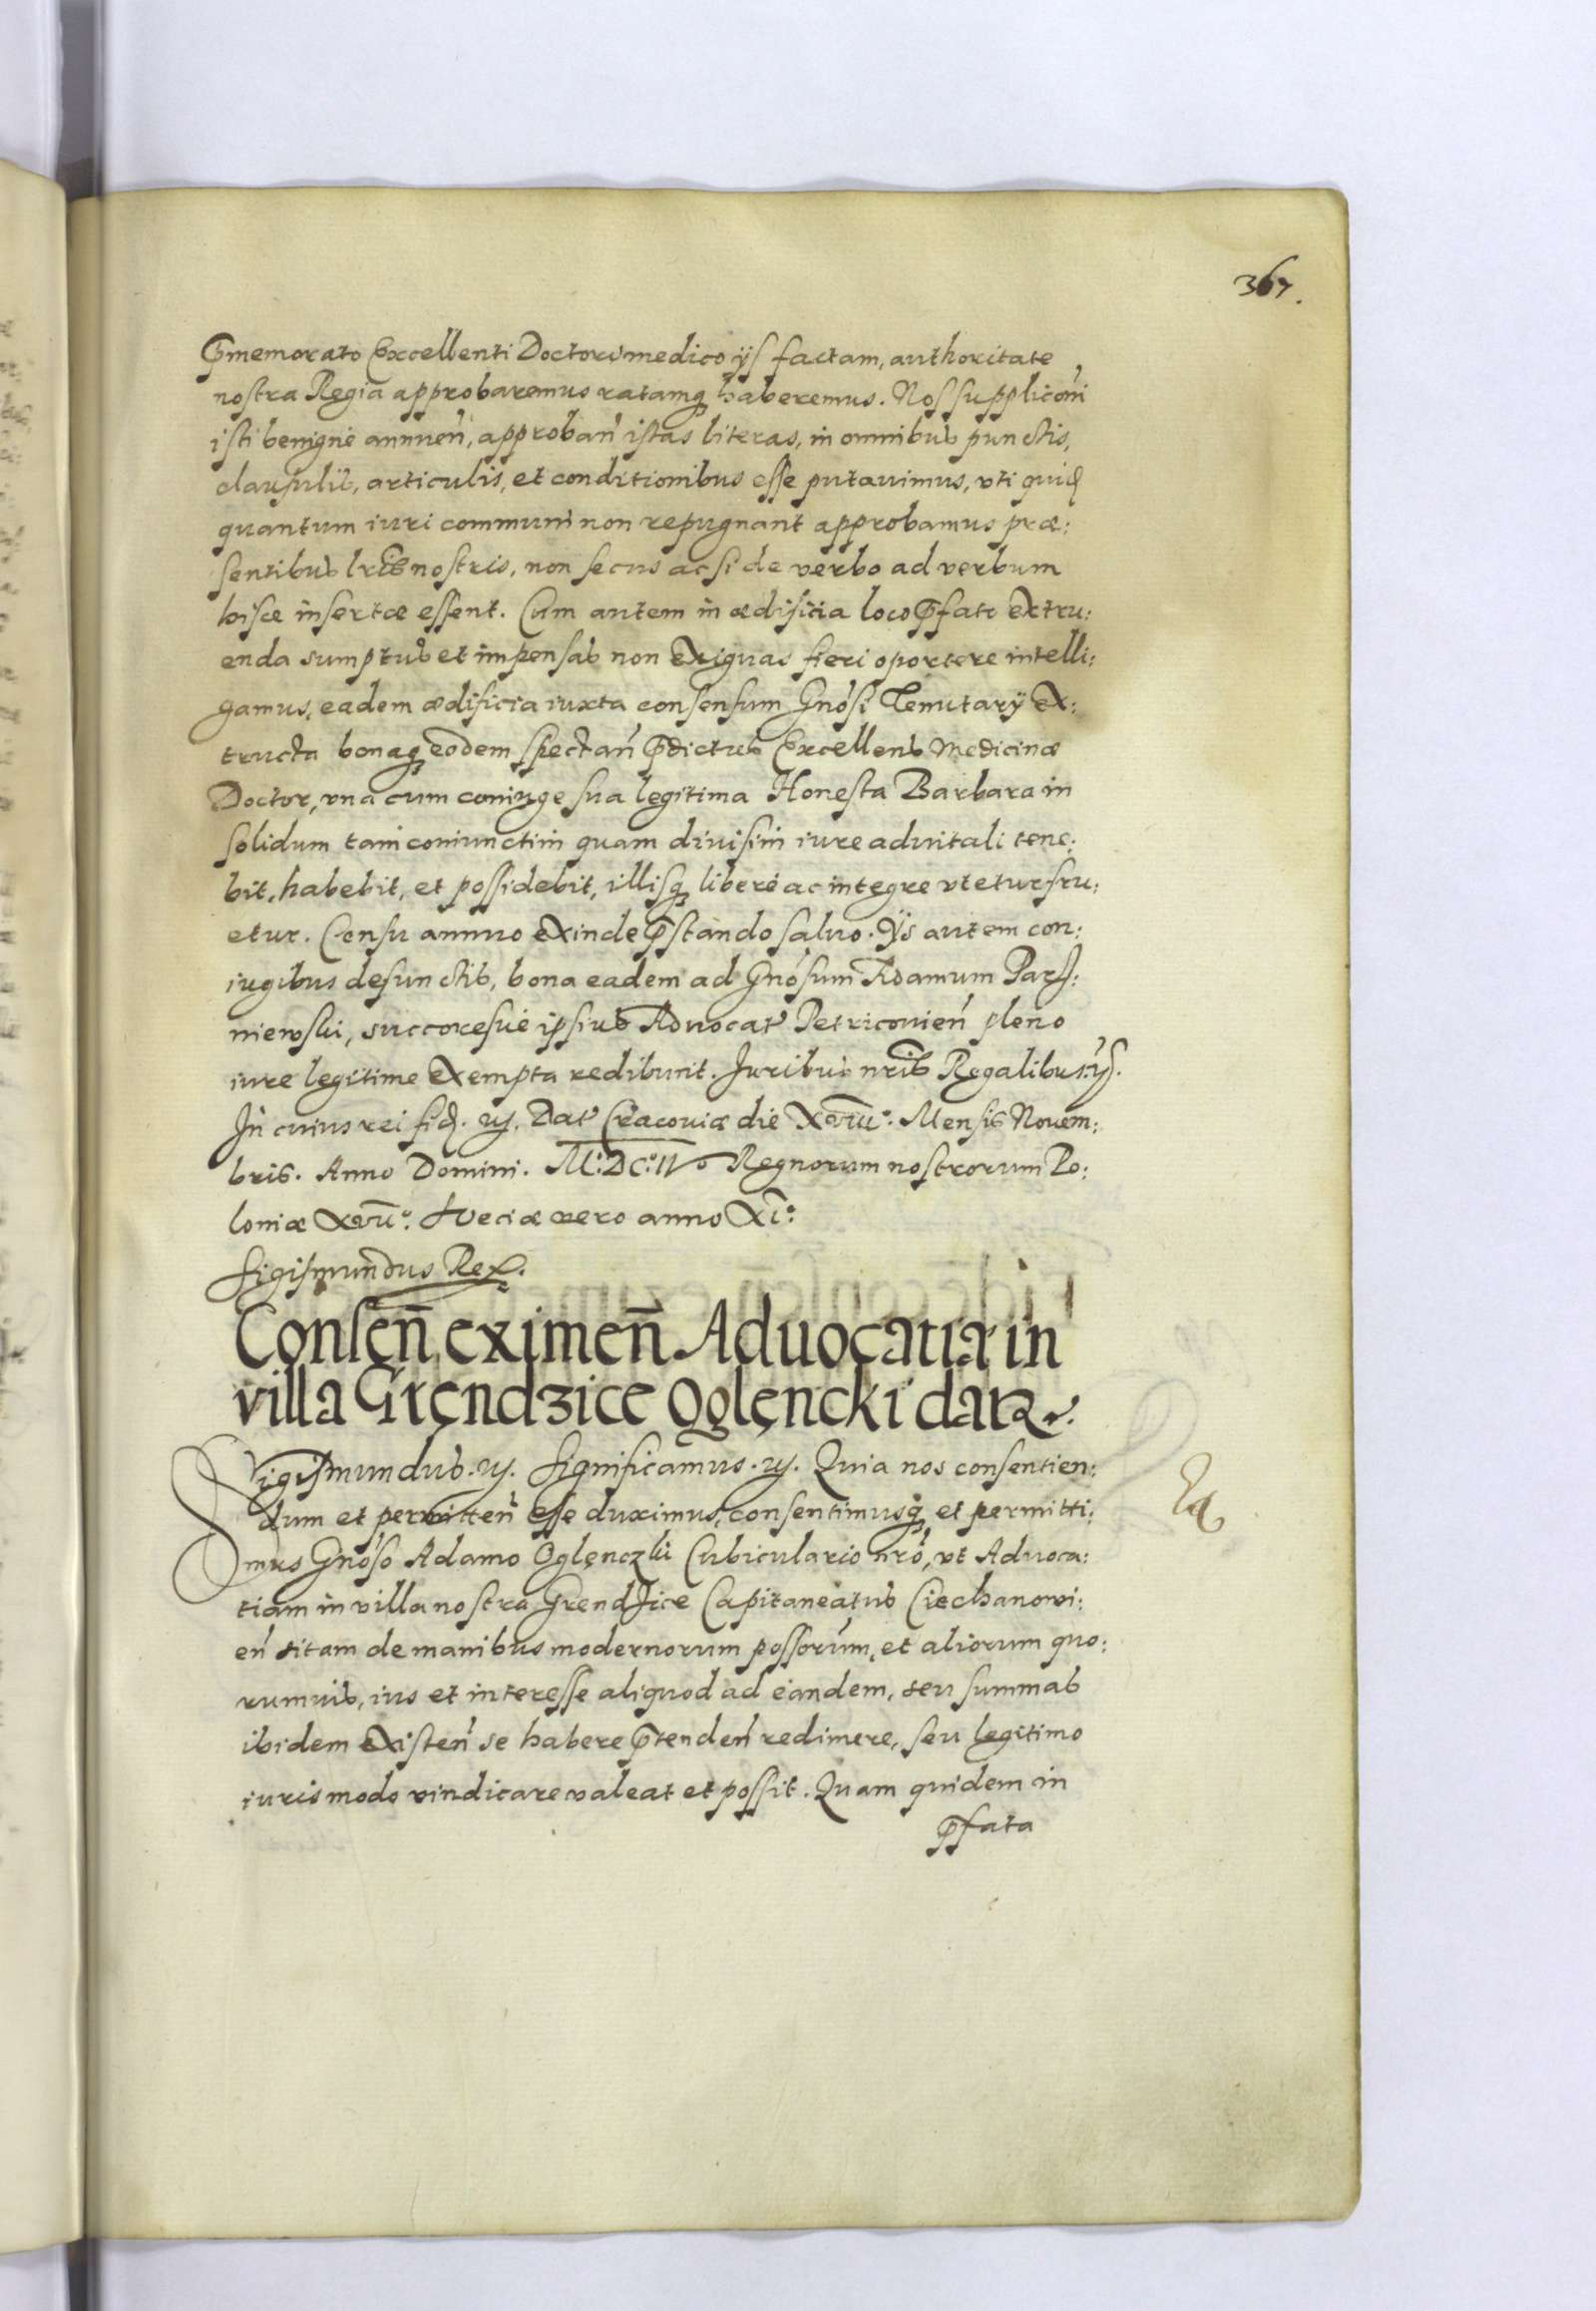 367.
p̄memorato Excellenti Doctori medico ijs factam, authoritate
nostra Regia approbaremus ratamq₃ haberemus. Nos supplicōni
isti benigne annuen̄, approban̄ istas literas, in omnibus punctis,
clausulis, articulis, et conditionibus esse putauimus, vti quid
quantum iuri communi non repugnant approbamus præ:
sentibus lrīs nostris, non secus ac si de verbo ad verbum
hisce insertæ essent. Cum autem in ædificia loco p̄fato extru:
enda sumptus et impensas non exiguas fieri oportere intelli:
gamus, eadem ædificia iuxta consensum Gnosi Tenutarÿ ex:
tructa bonaq₃ eodem spectan̄ p̄dictus Excellens Medicinæ
Doctor, vna cum coniuge sua legitima Honesta Barbara in
solidum tam coniunctim quam diuisim iure aduitali tene:
bit, habebit, et possidebit, illisq₃ libere ac integre vtetur fru:
etur. Censu annuo exinde p̄stando saluo. Ijs autem con:
iugibus defunctis, bona eadem ad Gnosum Adamum Parz:
niewski, succoresue ipsius Aduocat Petricouien̄ pleno
iure legitime exempta redibunt. Juribus nrīs Regalibus. ꝛc.
In cuius rei fid. ꝛc. Dat Cracouiæ die XVIII°. Mensis Nouem:
bris. Anno Domini. M:DC:IV° Regnorum nostrorum Po:
loniæ XVII°. Sueciæ vero anno XI°.
Sigismundus Rex.
Consen̄ eximen̄ Aduocatiā in
villa Gręndzice Oglęncki datꝛ.
Sigismundus. ꝛc. Significamus. ꝛc. Quia nos consentien:
dum et permitten̄ esse duximus, consentimusq₃ et permitti:
mus Gnoso Adamo Oglęnczki Cubiculario nrō, vt Aduoca:
tiam in villa nostra Grendzice Capitaneatus Ciechanoui:
en̄ sitam de manibus modernorum possorum, et aliorum quo:
rumuis, ius et interesse aliquod ad eandem, seu summas
ibidem existen̄ se habere p̄tenden̄ redimere, seu legitimo
iuris modo vindicare valeat et possit. Quam quidem in
p̄fata